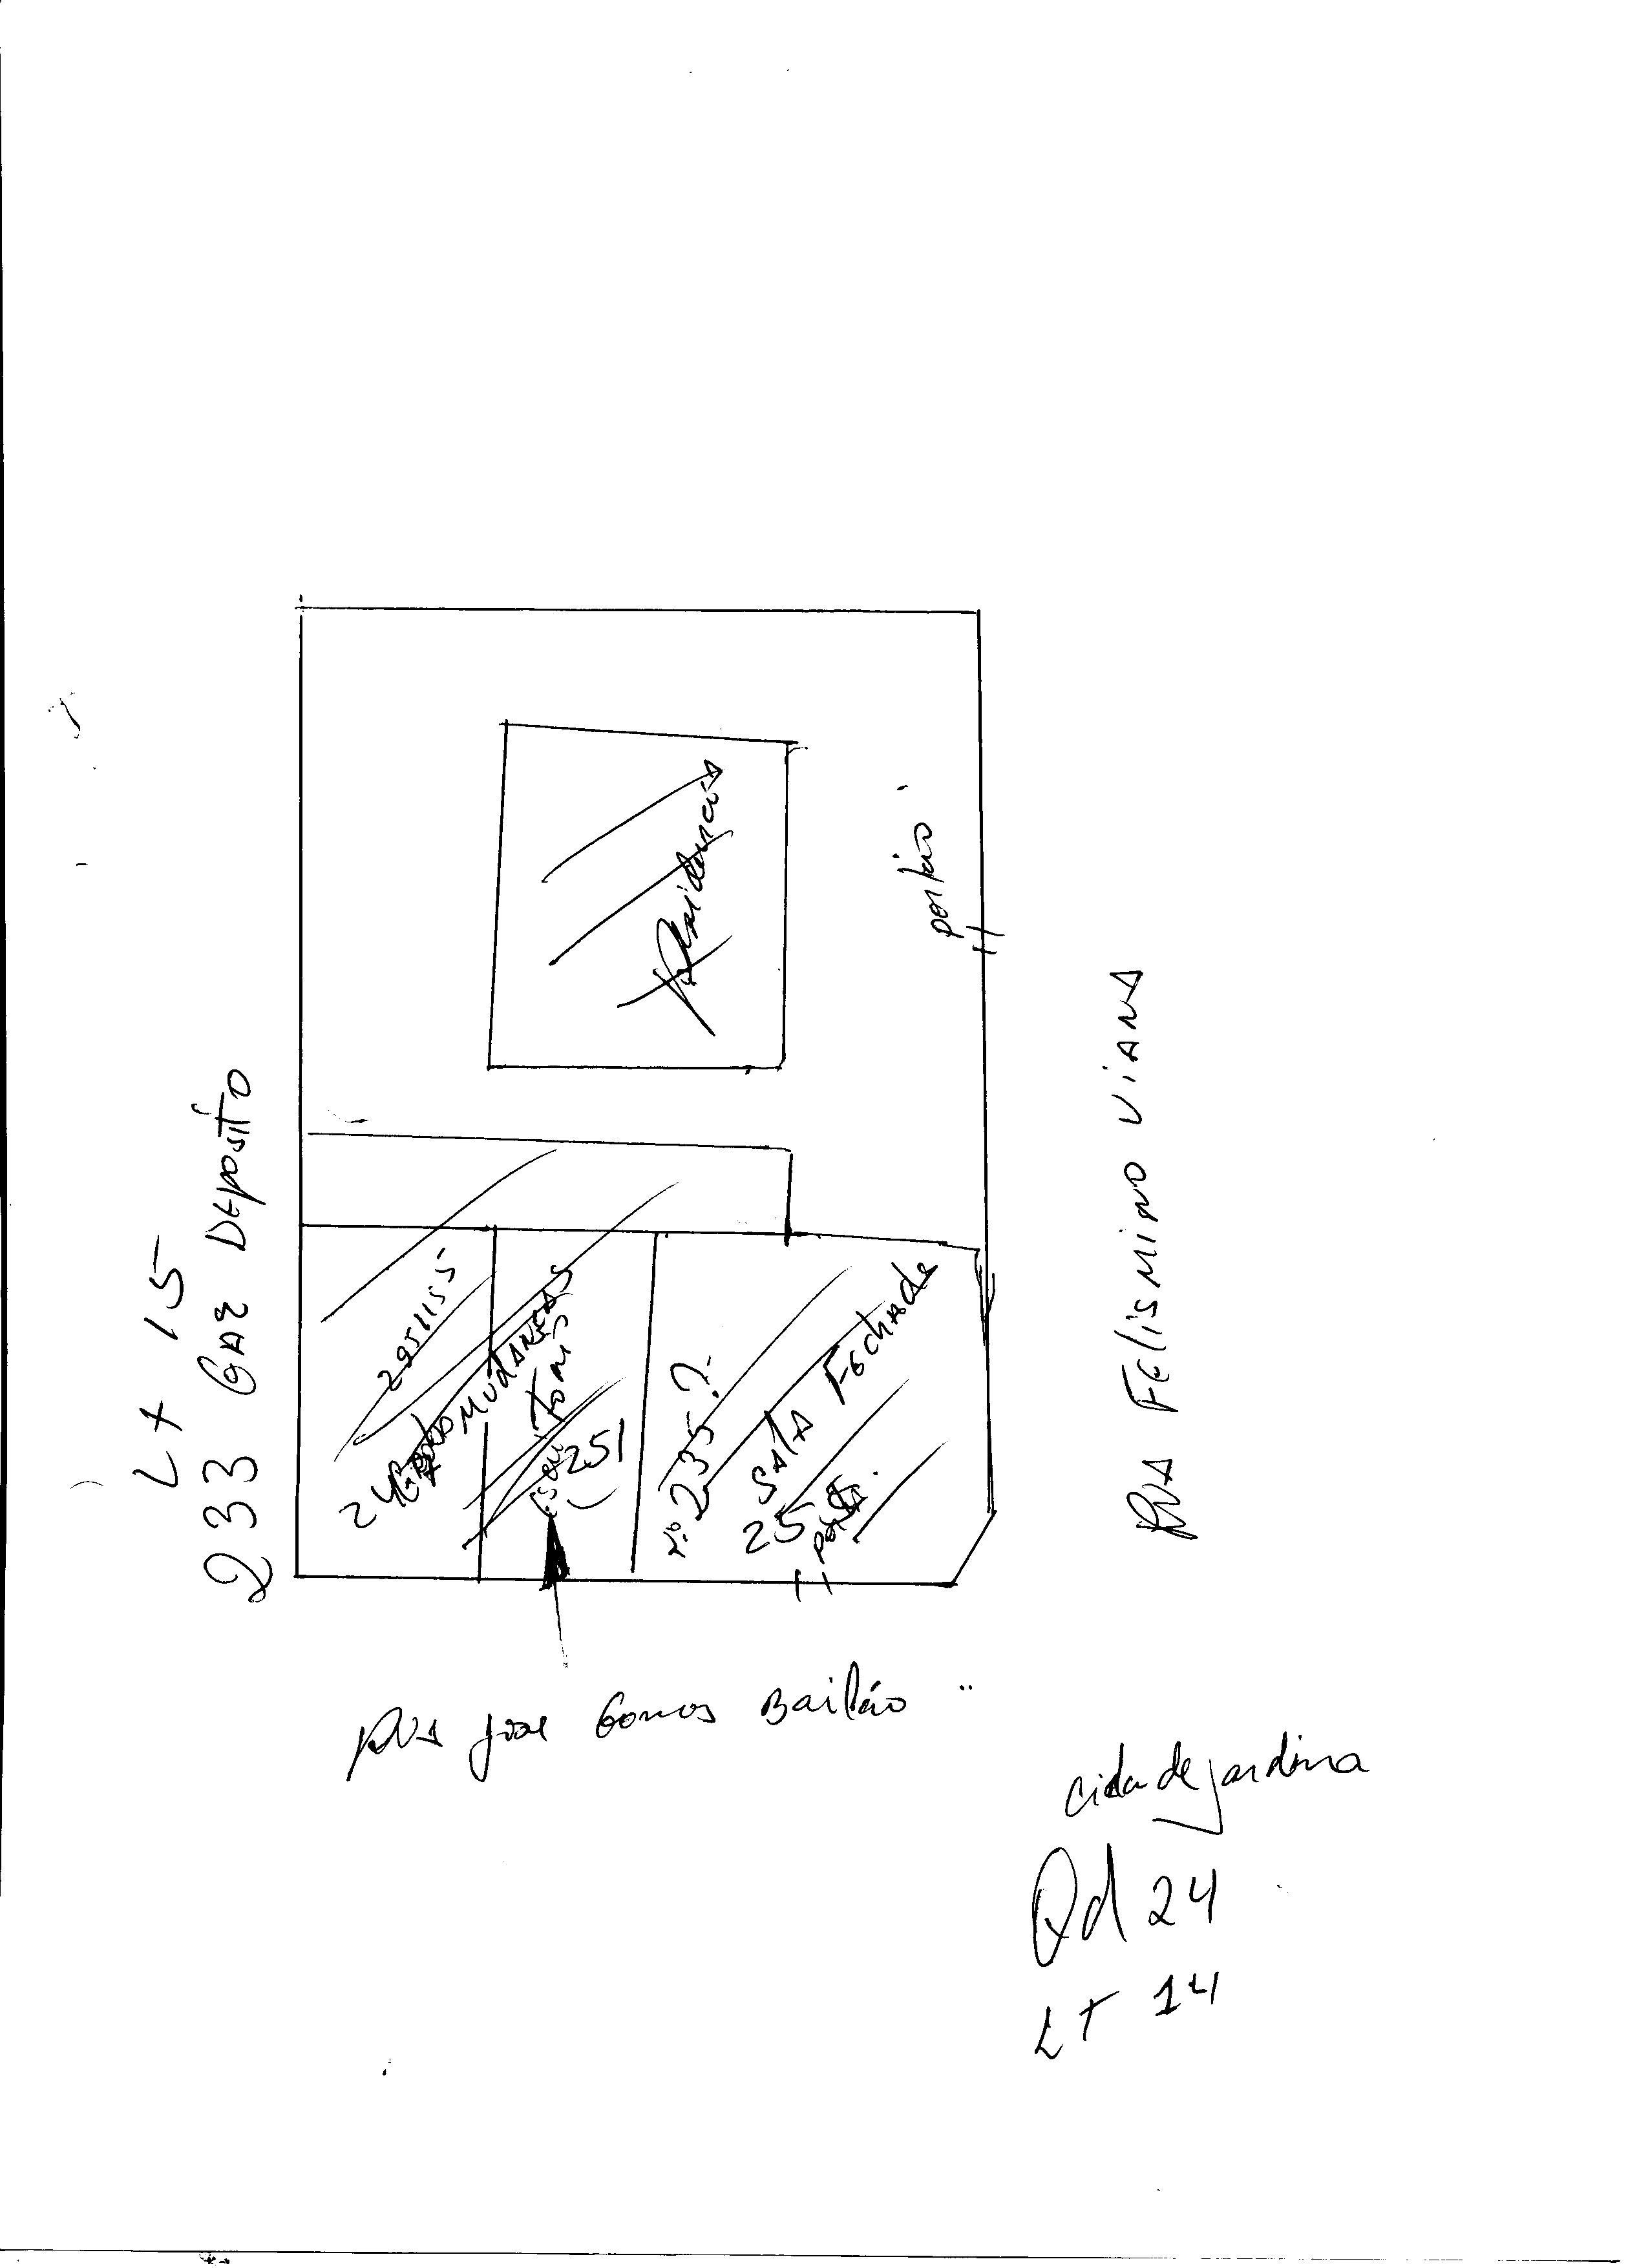 Lt 15
233 GAZ DEPOSITO
Residencia
portão
RUA FELISMINO VIANA
2951155
MUDANÇAS
251
Nº 235?
SALA FECHADA
porta
Rua Jose Gomes Bailão
cidade jardim
Qd 24
Lt 14